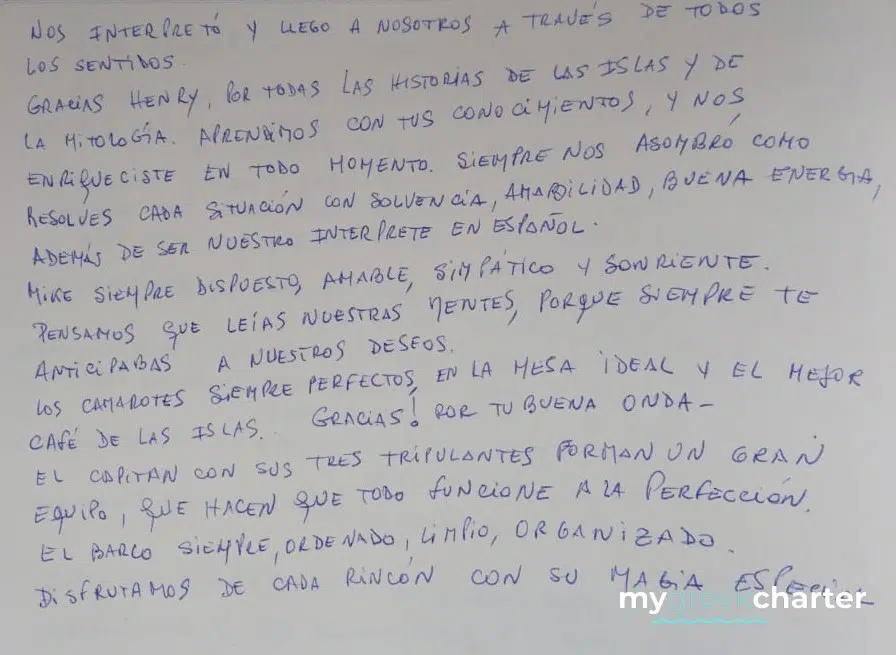 NOS INTERPRETÓ Y LLEGO A NOSOTROS A TRAVÉS DE TODOS
LOS SENTIDOS.
GRACIAS HENRY, POR TODAS LAS HISTORIAS DE LAS ISLAS Y DE
LA MITOLOGÍA. APRENDIMOS CON TUS CONOCIMIENTOS, Y NOS
ENRIQUECISTE EN TODO MOMENTO. SIEMPRE NOS ASOMBRÓ COMO
RESOLVES CADA SITUACIÓN CON SOLVENCIA, AMABILIDAD, BUENA ENERGIA,
ADEMÁS DE SER NUESTRO INTERPRETE EN ESPAÑOL.
MIKE SIEMPRE DISPUESTO, AMABLE, SIMPÁTICO Y SONRIENTE.
PENSAMOS QUE LEÍAS NUESTRAS MENTES, PORQUE SIEMPRE TE
ANTICIPABAS A NUESTROS DESEOS.
LOS CAMAROTES SIEMPRE PERFECTOS, EN LA MESA IDEAL Y EL MEJOR
CAFÉ DE LAS ISLAS. GRACIAS! POR TU BUENA ONDA-
EL CAPITAN CON SUS TRES TRIPULANTES FORMAN UN GRAN
EQUIPO, QUE HACEN QUE TODO FUNCIONE A LA PERFECCIÓN.
EL BARCO SIEMPRE, ORDENADO, LIMPIO, ORGANIZADO.
DISFRUTAMOS DE CADA RINCÓN CON SU MAGIA ESPECIAL
mygreekcharter